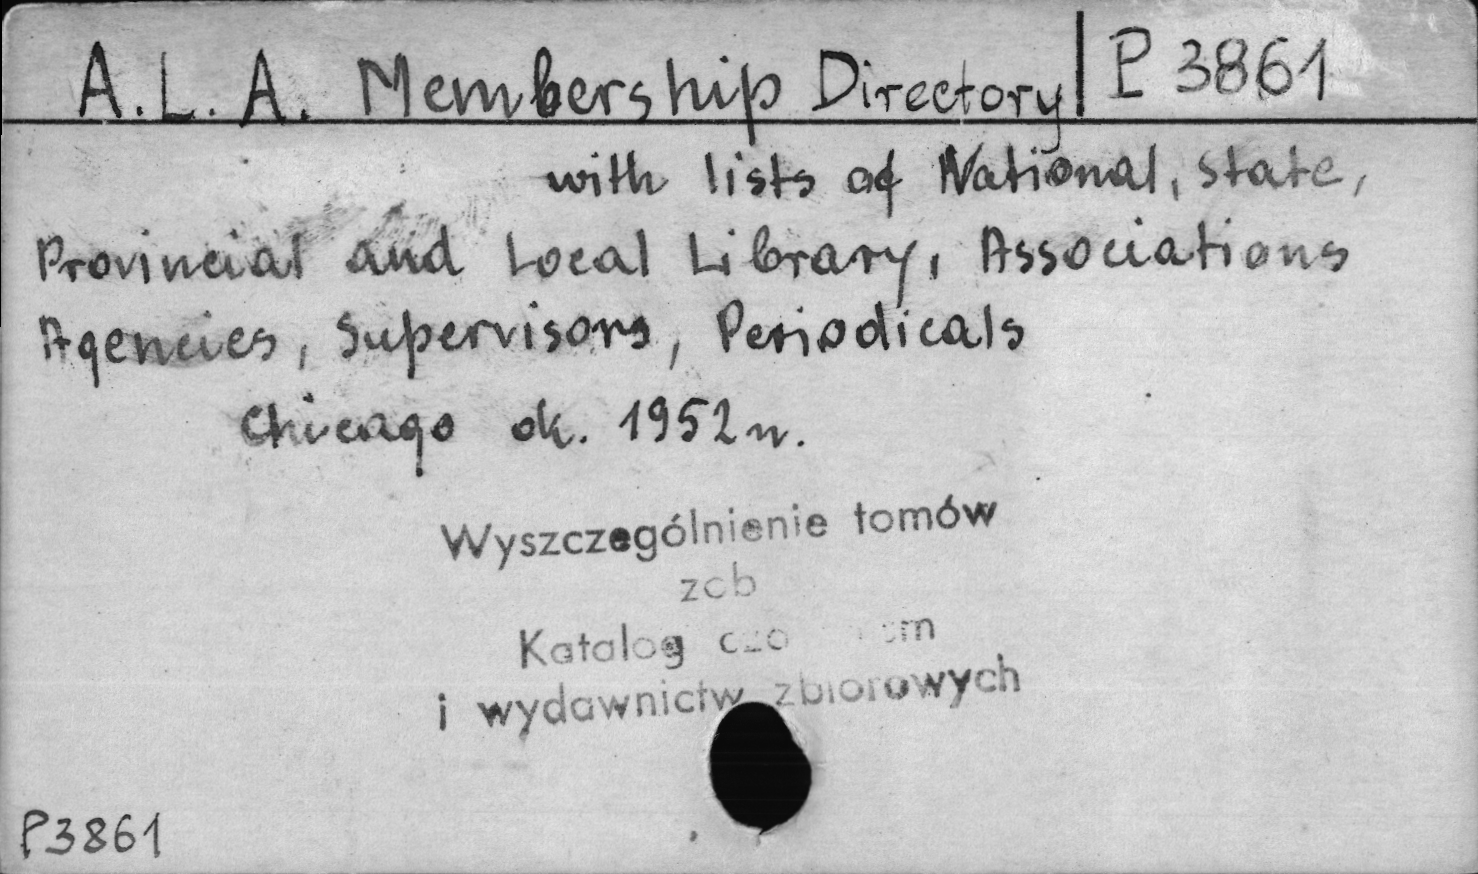 A.L.A. Membership Directory | P 3861
with lists of National, State,
Provincial and Local Library, Associations
Agencies, Supervisors, Periodicals
Chicago ok. 1952 n.
Wyszczególnienie tomów
zob
Katalog
i wydawnictw zbiorowych
P3861